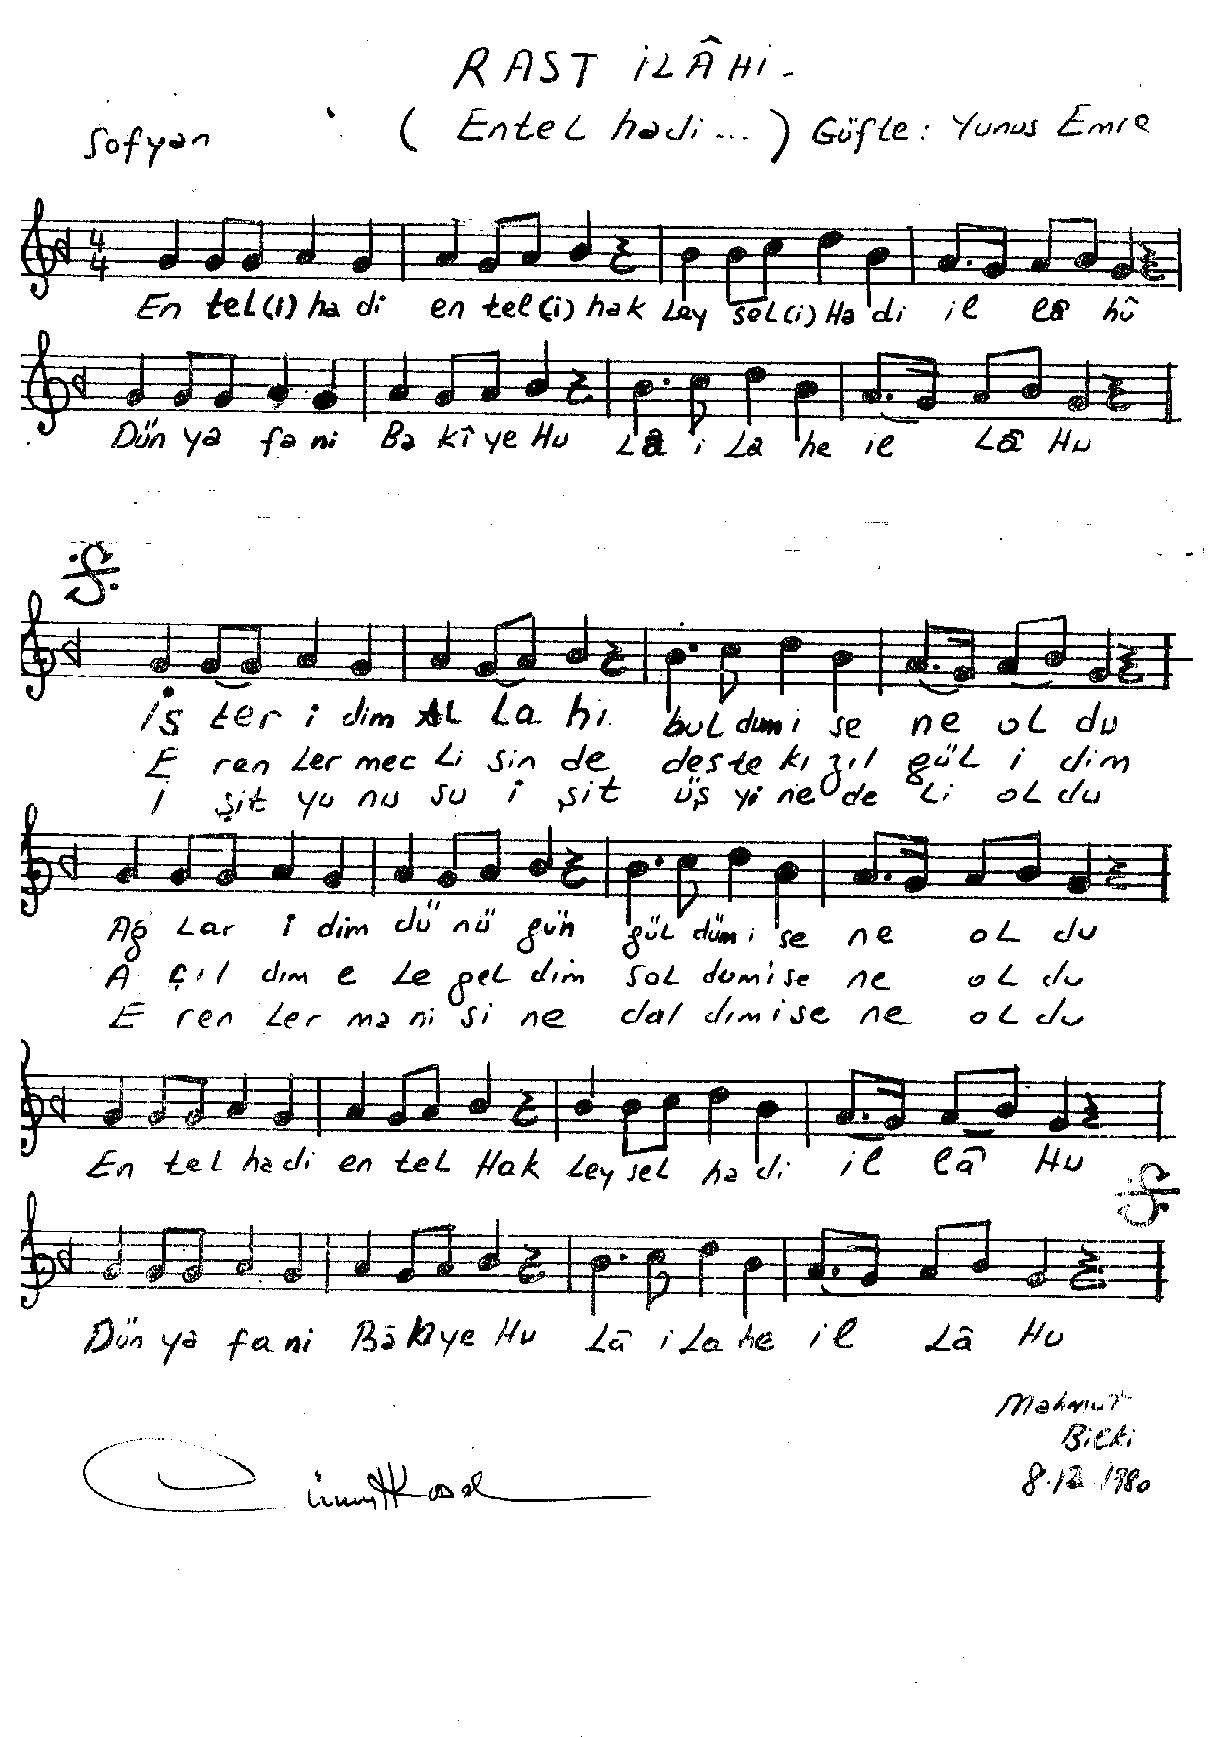 RAST İLÂHİ -
Sofyan
( Entel hadi... ) Güfte : Yunus Emre
4
4
En tel(i) ha di en tel(i) hak Ley sel(i) Ha di il lâ hû
Dün ya fa ni Ba kî ye Hu Lâ i La he il Lâ Hu
İs ter i dim AL La hı bul dum i se ne ol du
E ren Ler mec Li sin de deste kı zıl gül i dim
İ şit yu nu su i şit üş yi ne de Li ol du
Ağ Lar i dim dü nü gün gül düm i se ne ol du
A çıl dım e Le gel dim sol dum i se ne ol du
E ren Ler ma ni si ne dal dım i se ne ol du
En tel ha di en tel Hak Ley sel ha di il lâ Hu
Dün ya fa ni Bâ ki ye Hu Lâ i La he il Lâ Hu
Mahmut
Bilki
8.12.1980